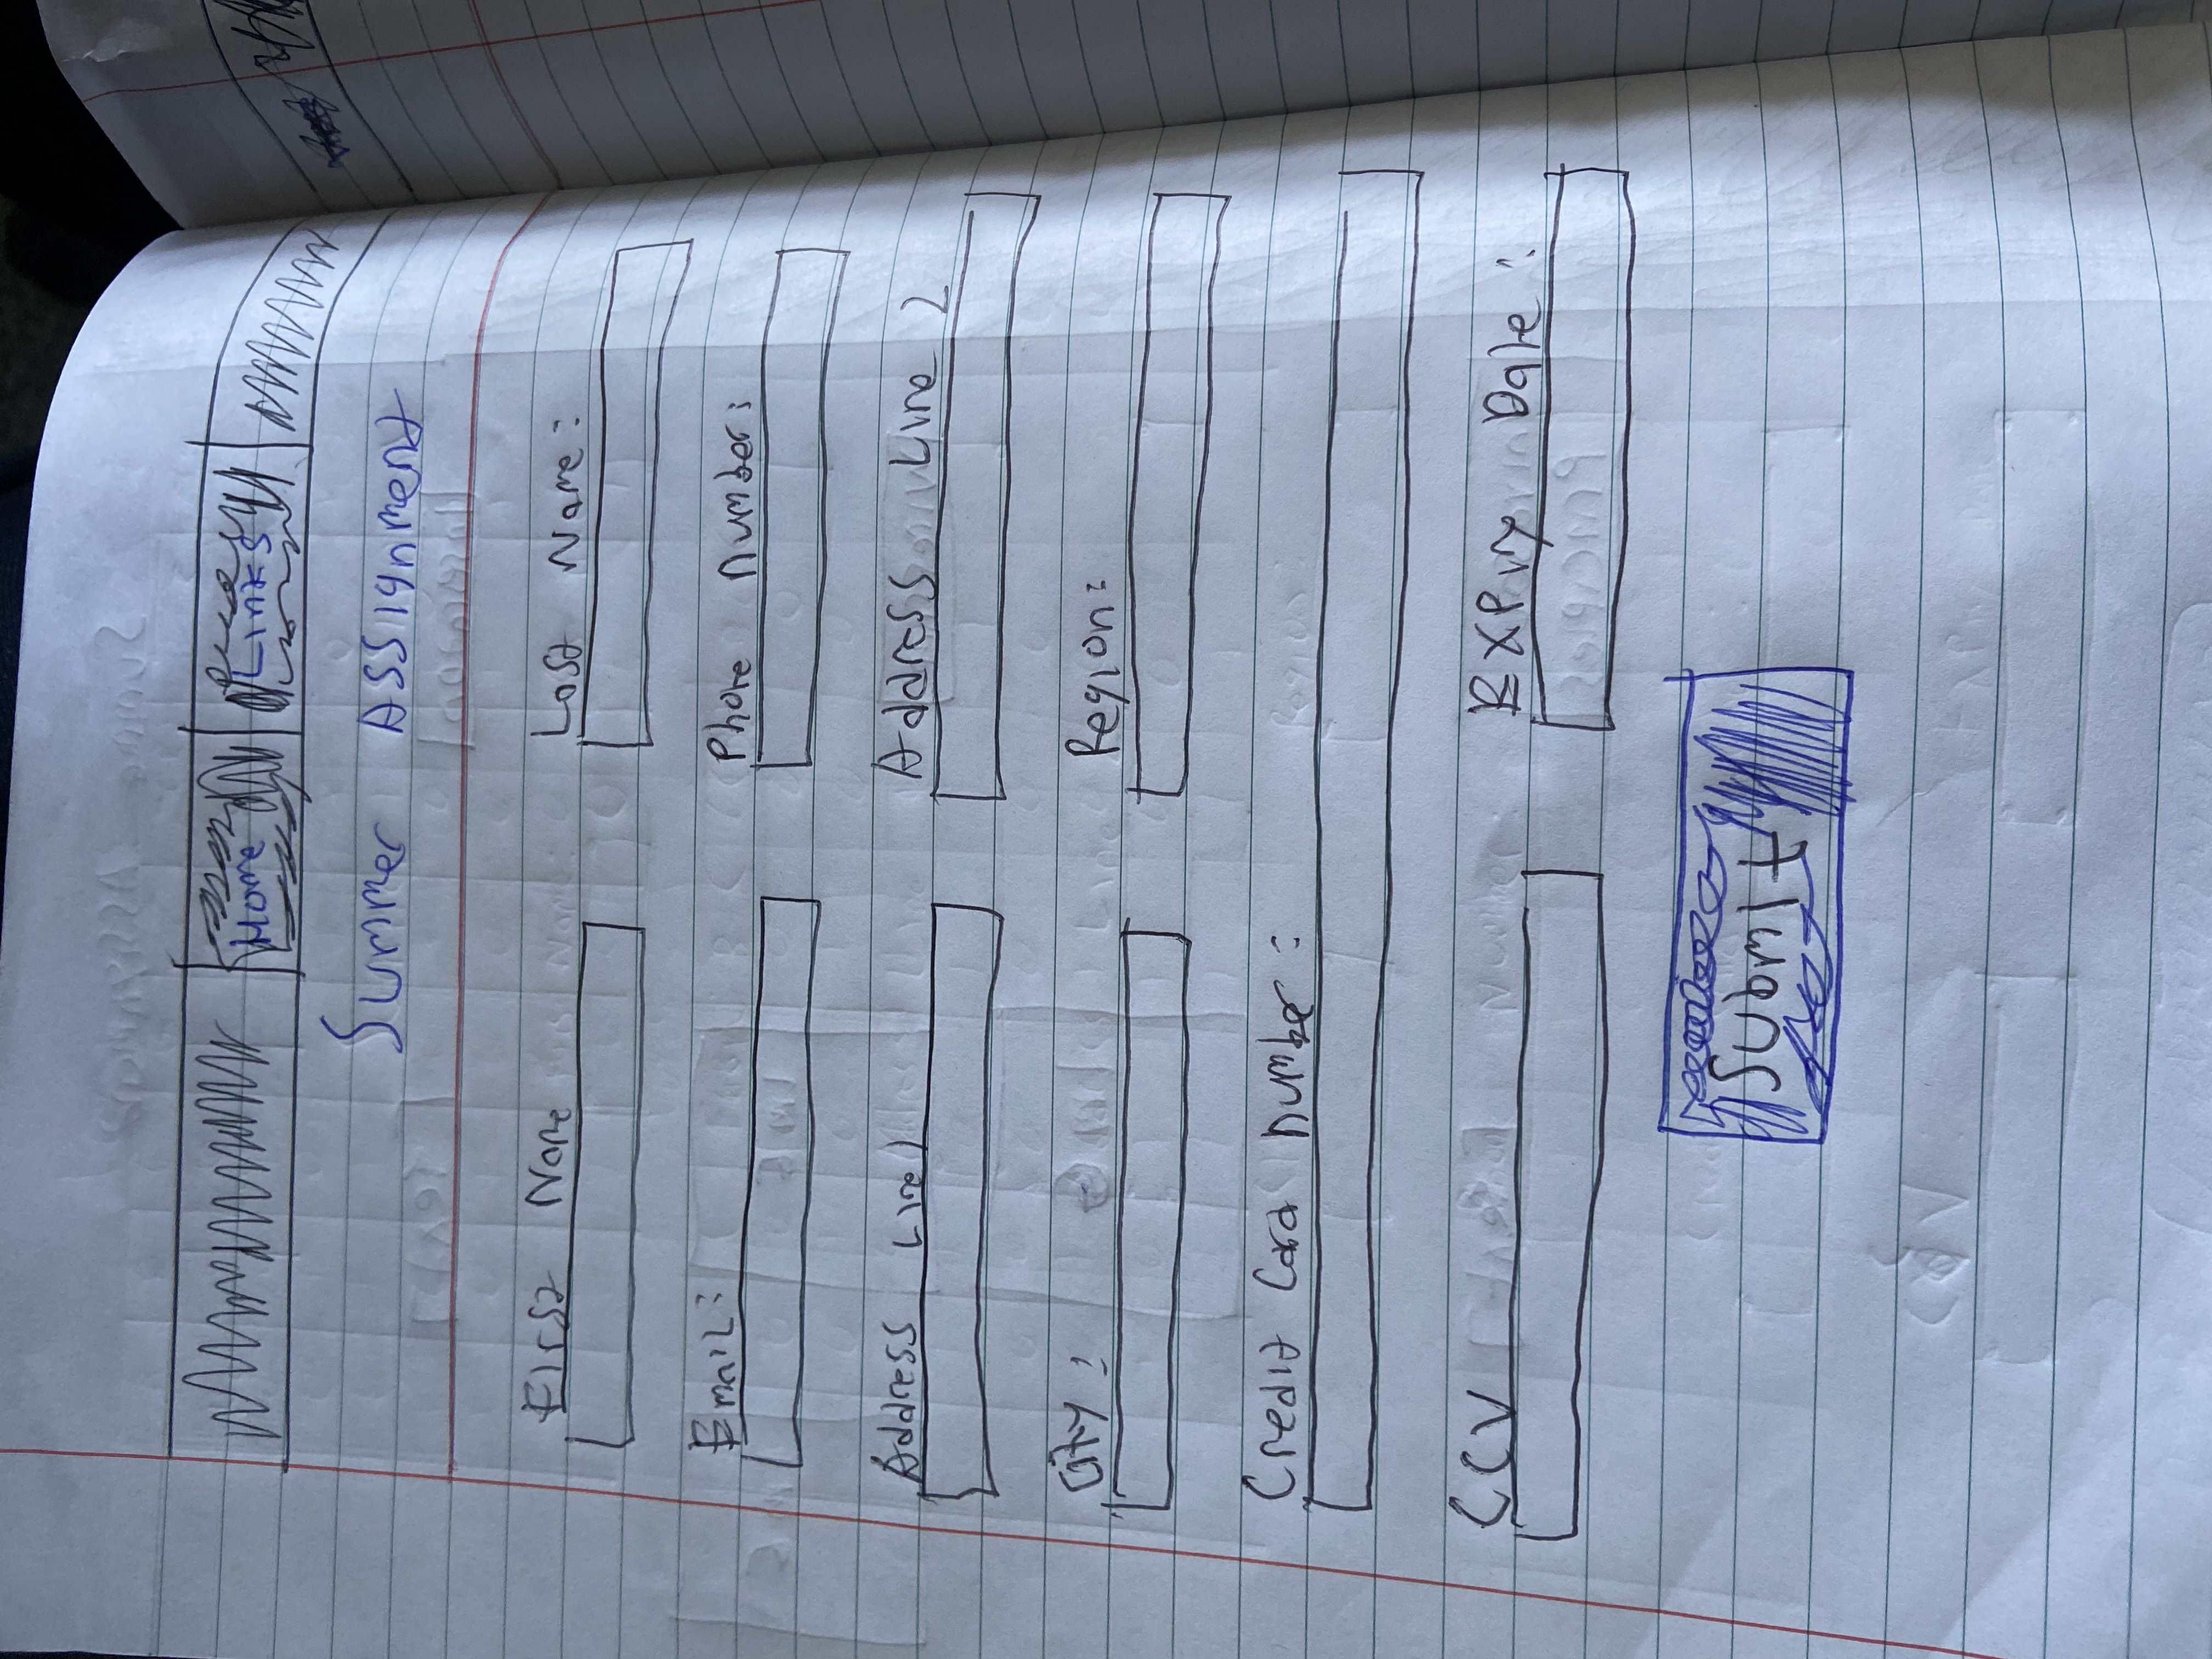 Home Links
Summer Assignment
First Name Last Name:
Email: Phone Number:
Address Line 1 Address Line 2
City: Region:
Credit Card Number:
CCV Expiry Date:
Submit